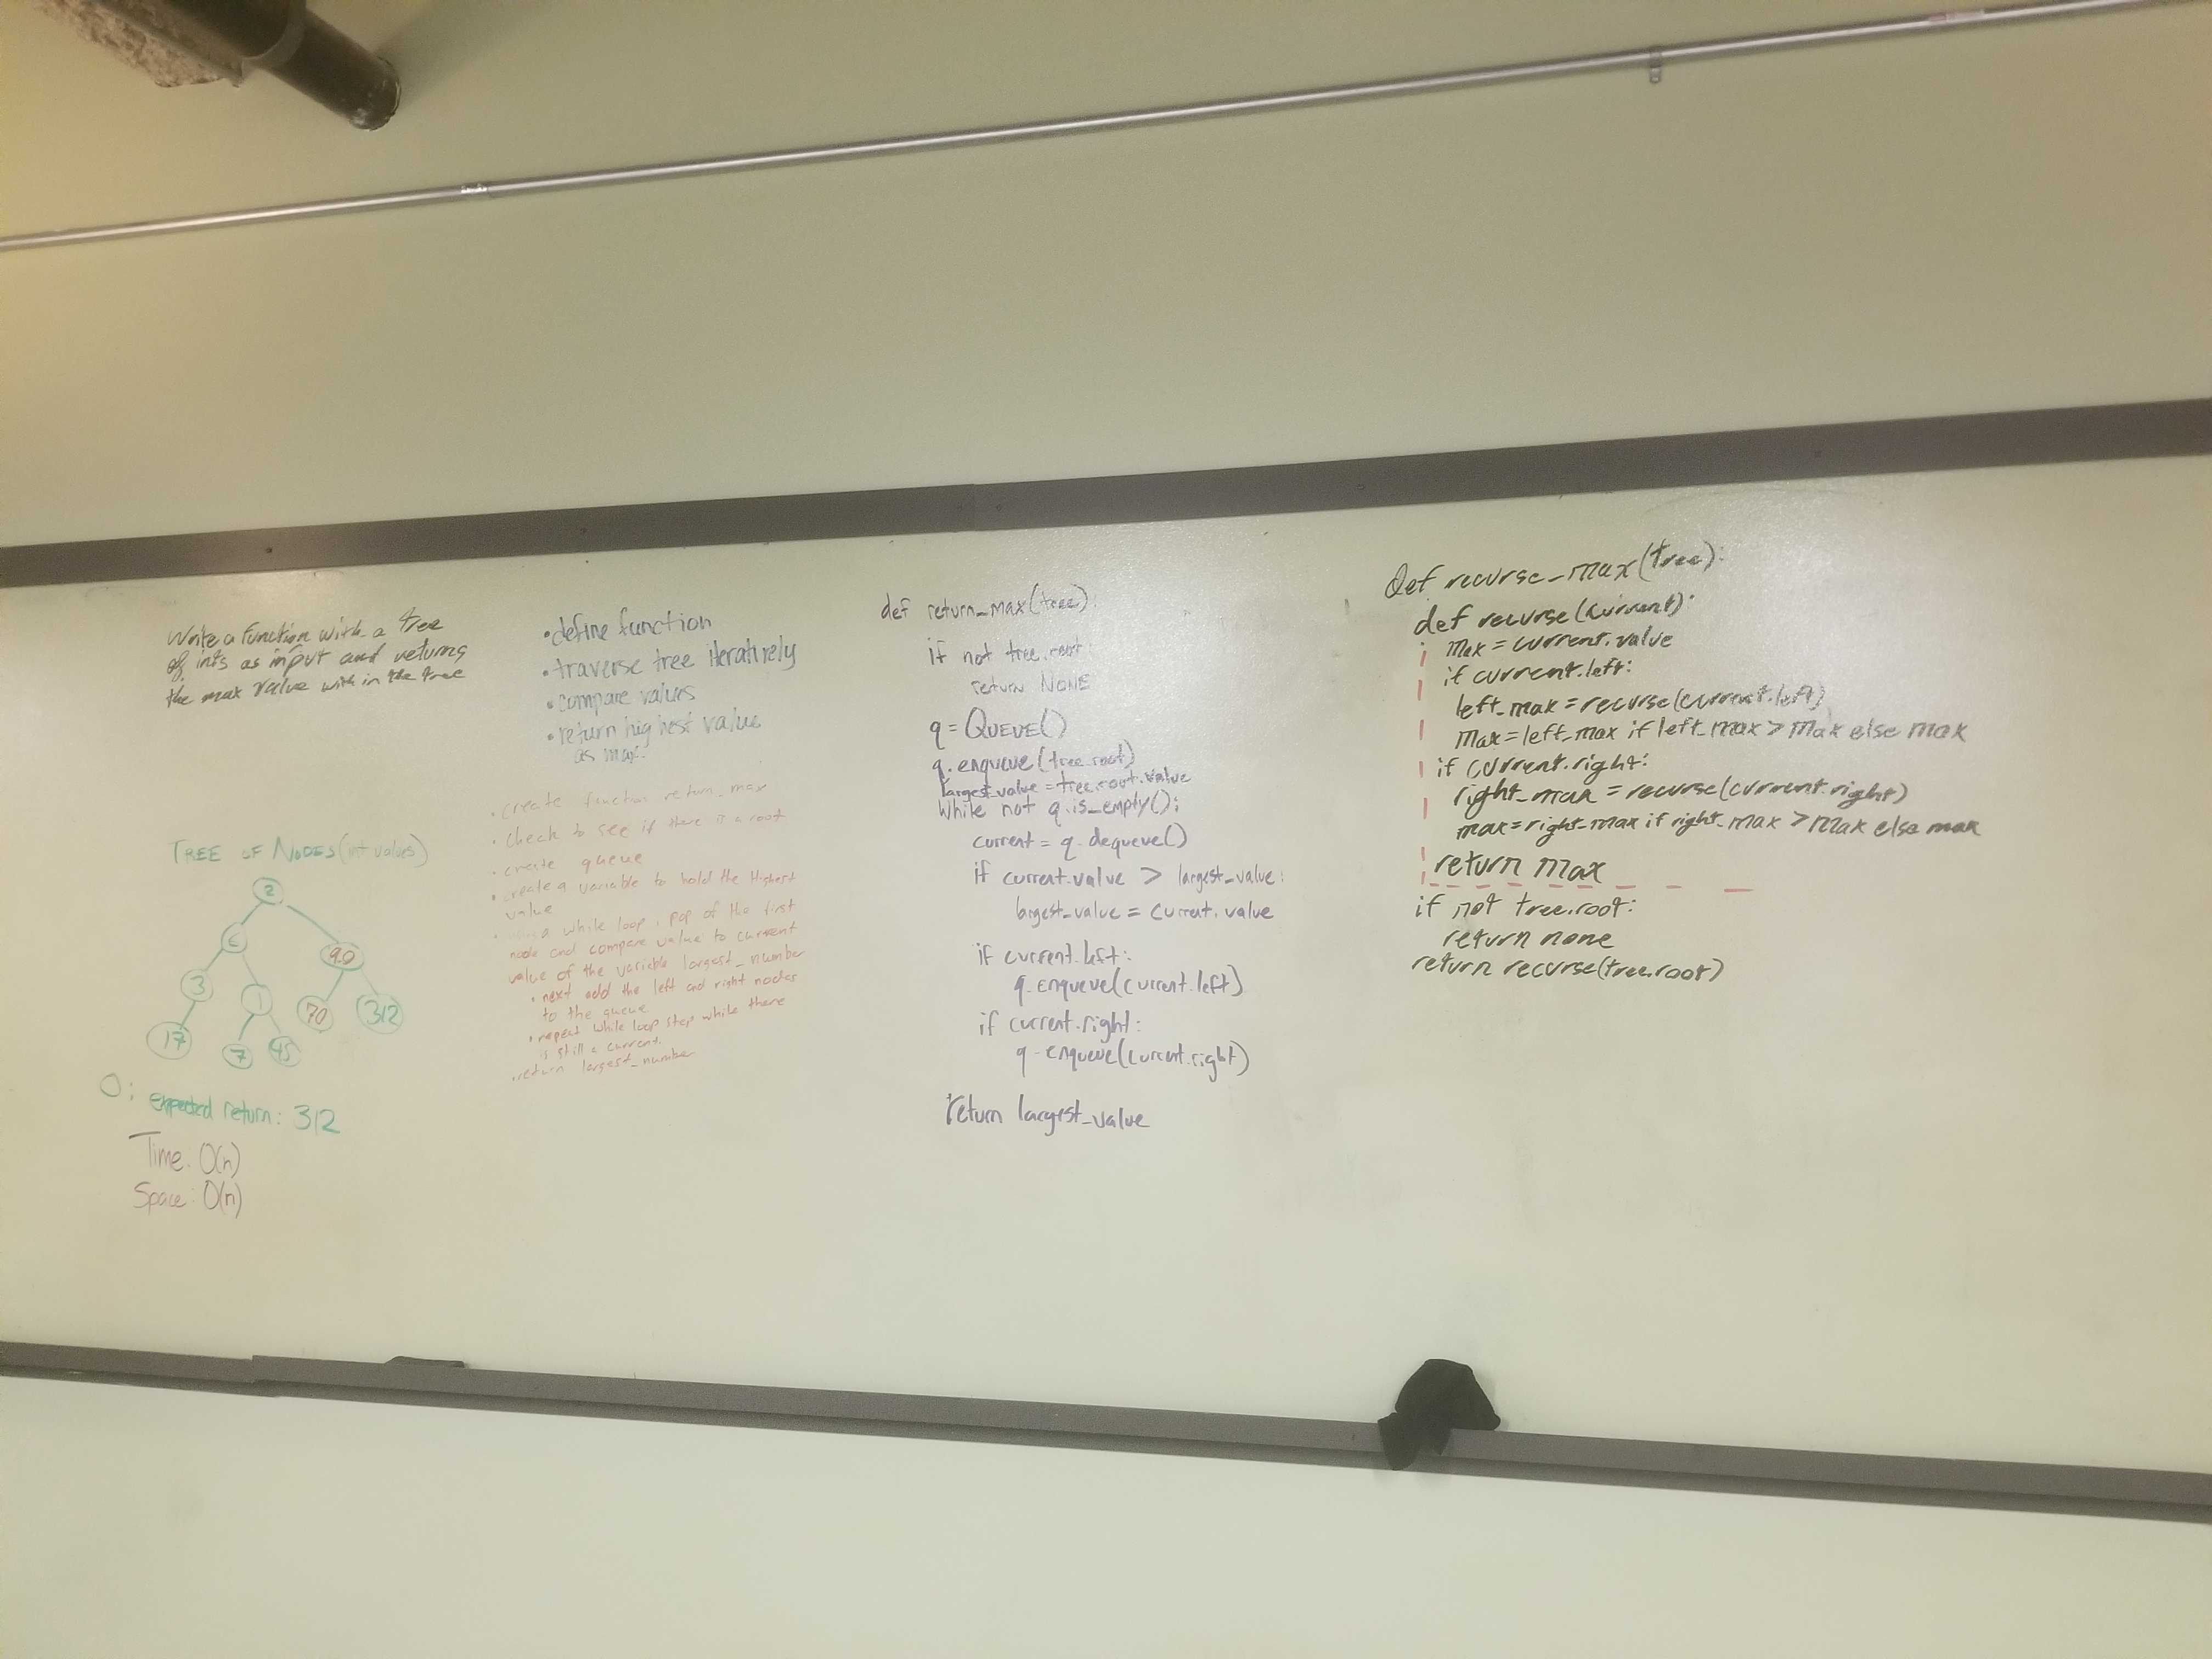 Write a function with a tree
of ints as input and returns
the max value with in the tree
TREE OF NODES (int values)
2
90
3
1
70
312
17
7
45
O: expected return: 312
Time: O(n)
Space: O(n)
• define function
• traverse tree iteratively
• compare values
• return highest value
as max.
• create function return_max
• check to see if there is a root
• create queue
• create a variable to hold the Highest
value
a while loop, pop of the first
node and compare value to current
value of the variable largest_number
• next add the left and right nodes
to the queue
• repeat while loop step while there
is still a current.
• return largest_number
def return_max(tree):
if not tree.root:
return NONE
q = QUEUE()
q.enqueue(tree.root)
largest_value = tree.root.value
While not q.is_empty():
current = q.dequeue()
if current.value > largest_value:
largest_value = current.value
if current.left:
q.enqueue(current.left)
if current.right:
q.enqueue(current.right)
return largest_value
def recurse_max(tree):
def recurse(current):
max = current.value
if current.left:
left_max = recurse(current.left)
max = left_max if left_max > max else max
if current.right:
right_max = recurse(current.right)
max = right_max if right_max > max else max
return max
if not tree.root:
return none
return recurse(tree.root)